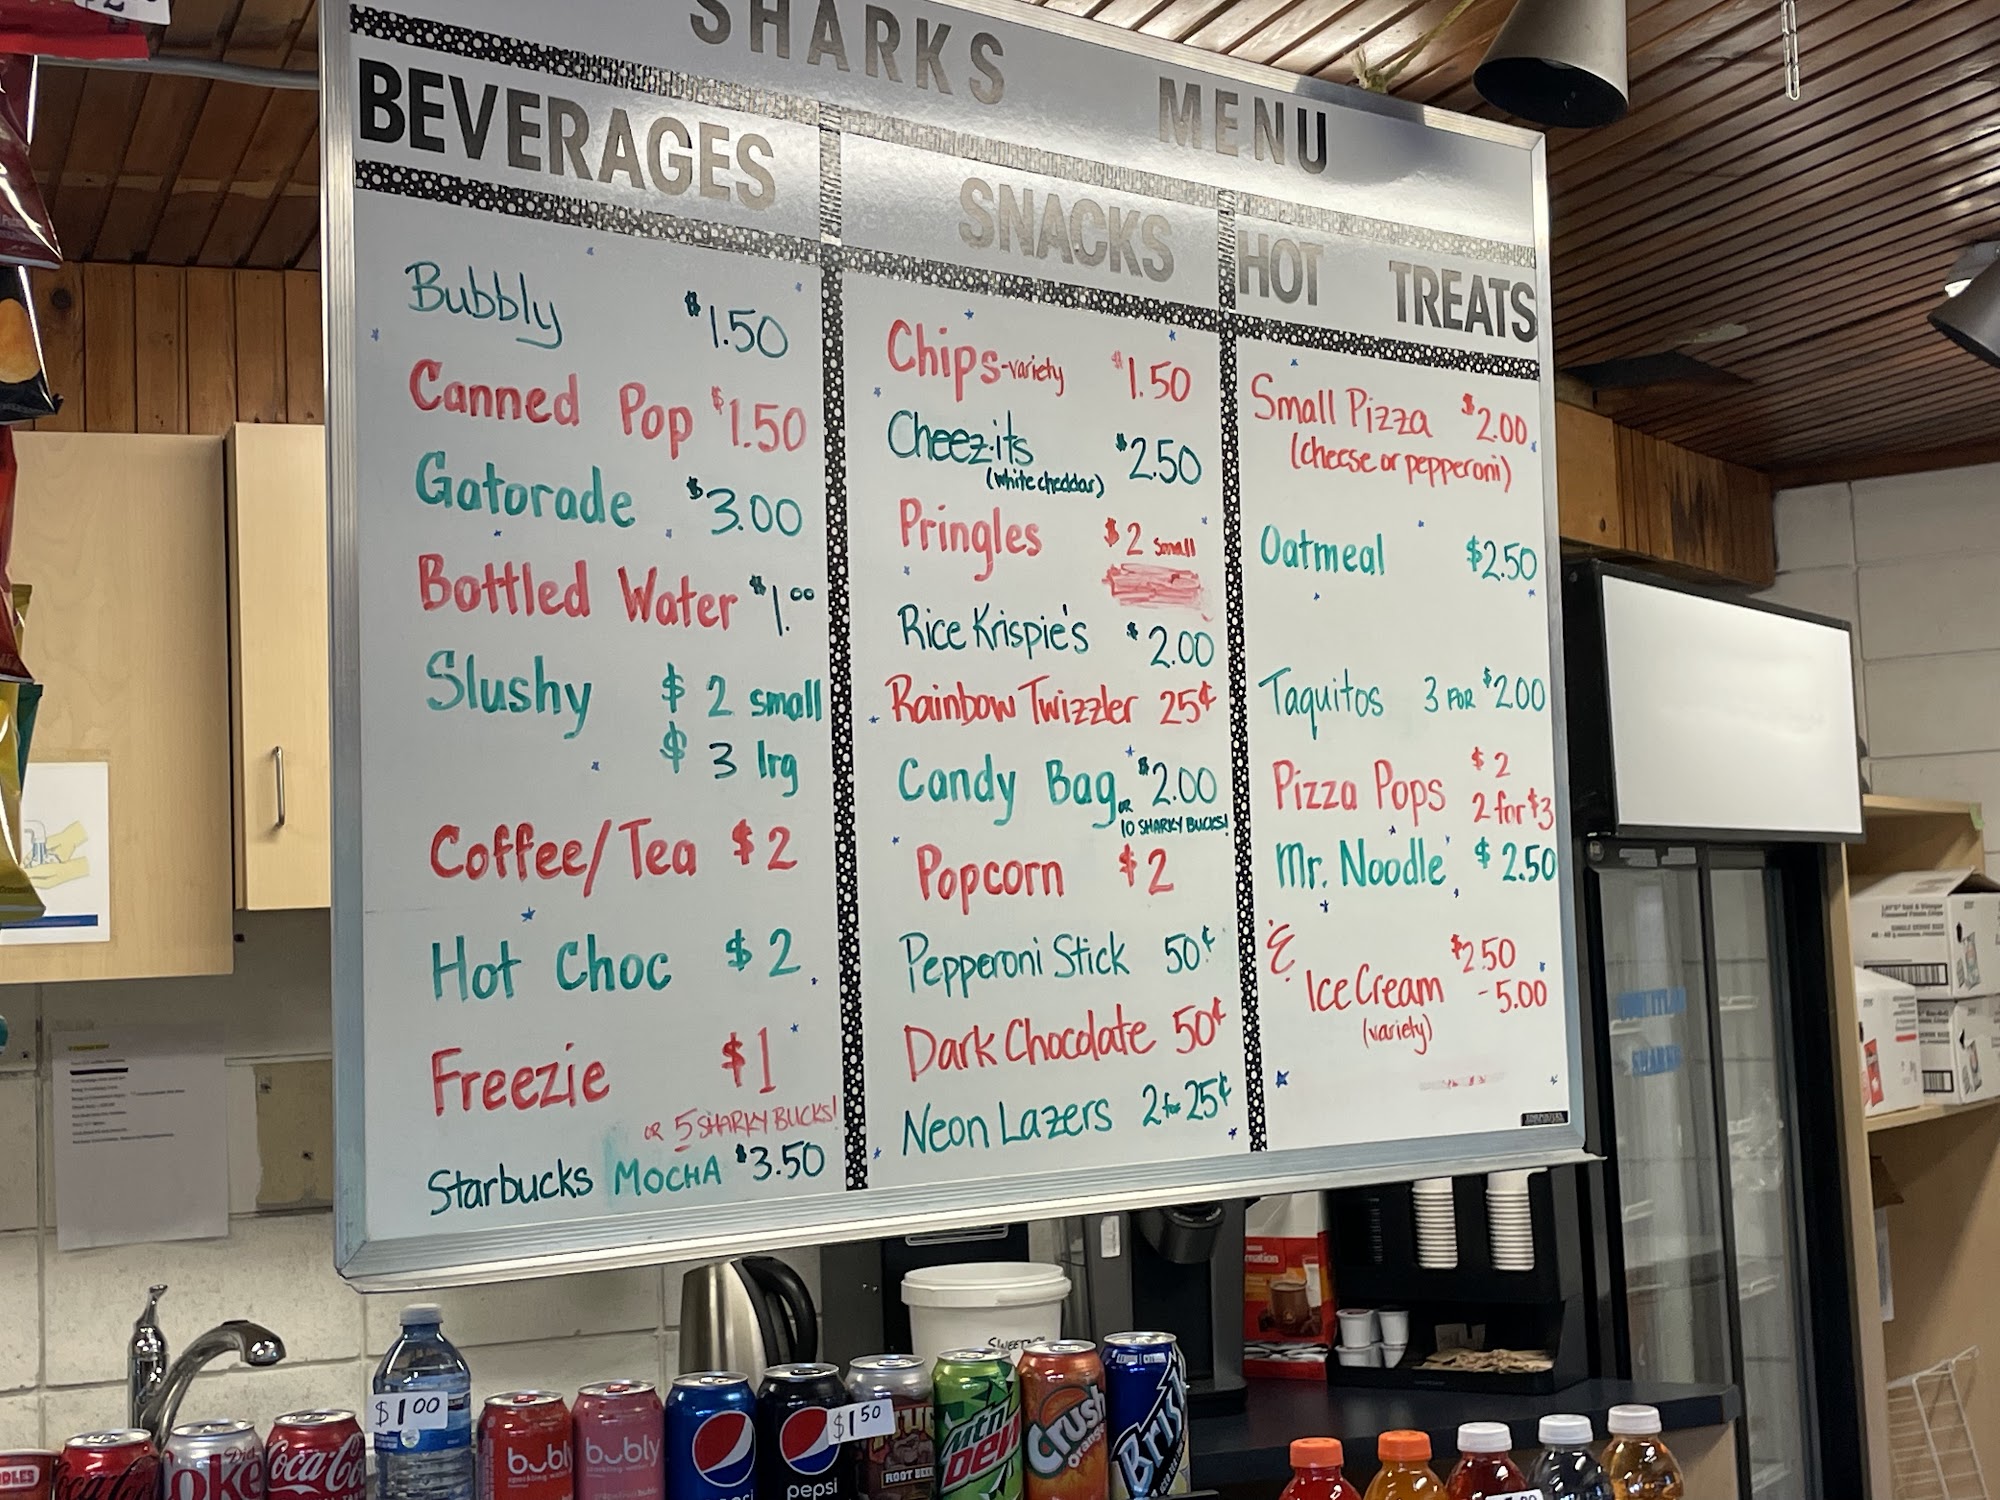 SHARKS MENU
BEVERAGES
Bubbly $1.50
Canned Pop $1.50
Gatorade $3.00
Bottled Water $1.00
Slushy $2 small
$3 lrg
Coffee/Tea $2
Hot Choc $2
Freezie $1
or 5 SHARKY BUCKS!
Starbucks MOCHA $3.50
SNACKS
Chips-variety $1.50
Cheez-its $2.50
(white cheddar)
Pringles $2 small
Rice Krispie's $2.00
Rainbow Twizzler 25¢
Candy Bag $2.00
or 10 SHARKY BUCKS!
Popcorn $2
Pepperoni Stick 50¢
Dark Chocolate 50¢
Neon Lazers 2 for 25¢
HOT TREATS
Small Pizza $2.00
(cheese or pepperoni)
Oatmeal $2.50
Taquitos 3 FOR $2.00
Pizza Pops $2
2 for $3
Mr. Noodle $2.50
&
Ice Cream $2.50
-5.00
(variety)
SHARKS
$1.00
$1.50
Coca-Cola
Diet Coke
Coca-Cola
bubly
bubly
pepsi
pepsi
ROOT BEER
Mtn Dew
Crush
orange
Brisk